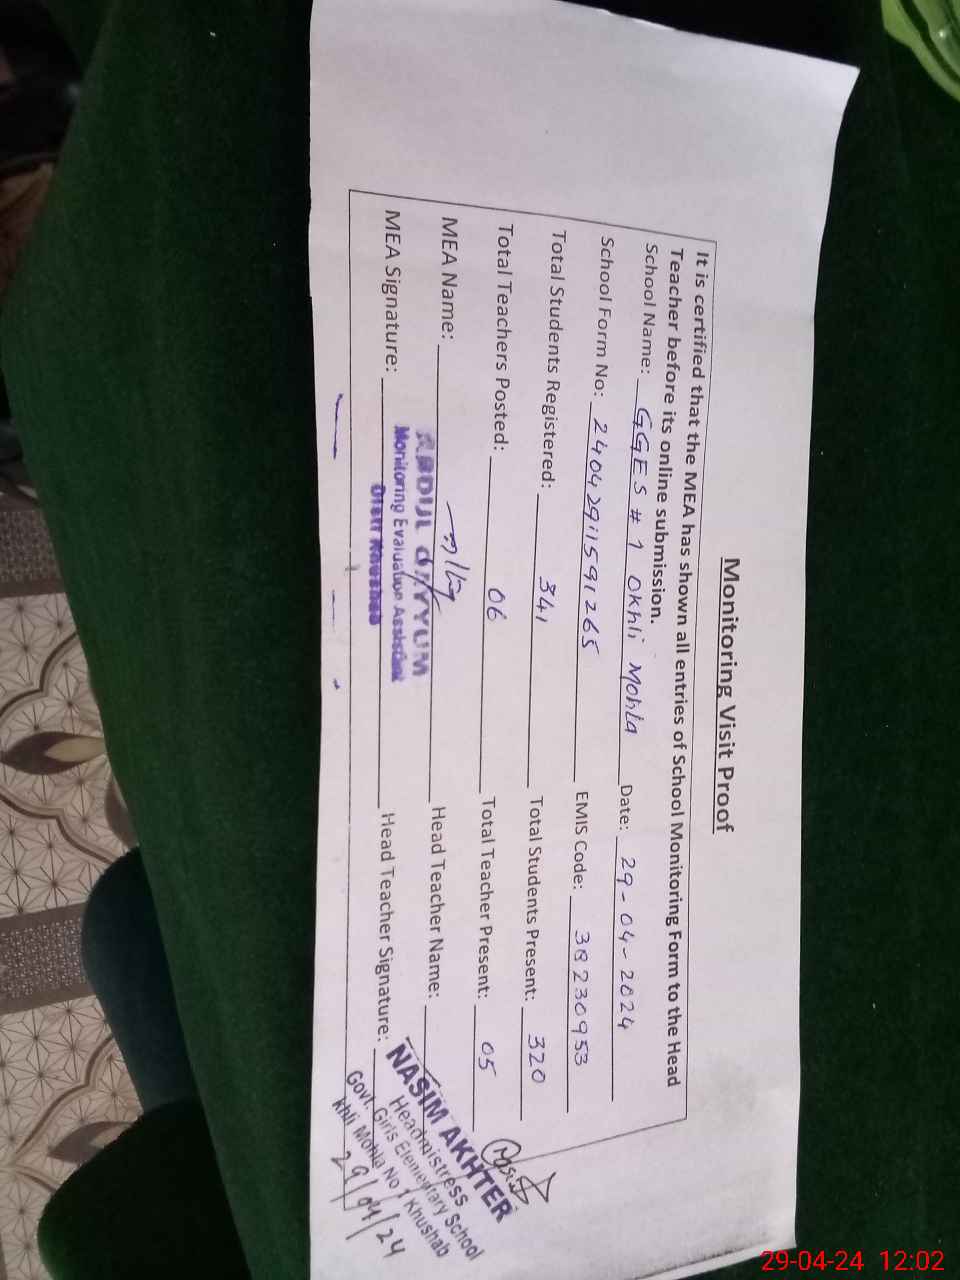 Monitoring Visit Proof
It is certified that the MEA has shown all entries of School Monitoring Form to the Head
Teacher before its online submission.
School Name: GGES # 1 Okhli Mohla Date: 29-04-2024
School Form No: 24042911591265 EMIS Code: 38230953
Total Students Registered: 341 Total Students Present: 320
Total Teachers Posted: 06 Total Teacher Present: 05
MEA Name: Head Teacher Name:
ABDUL QAYYUM
Monitoring Evaluation Assistant
Distt Khushab
MEA Signature: Head Teacher Signature:
NASIM AKHTER
Headmistress
Govt. Girls Elementary School
khli Mohla No 1 Khushab
29/04/24
29-04-24 12:02